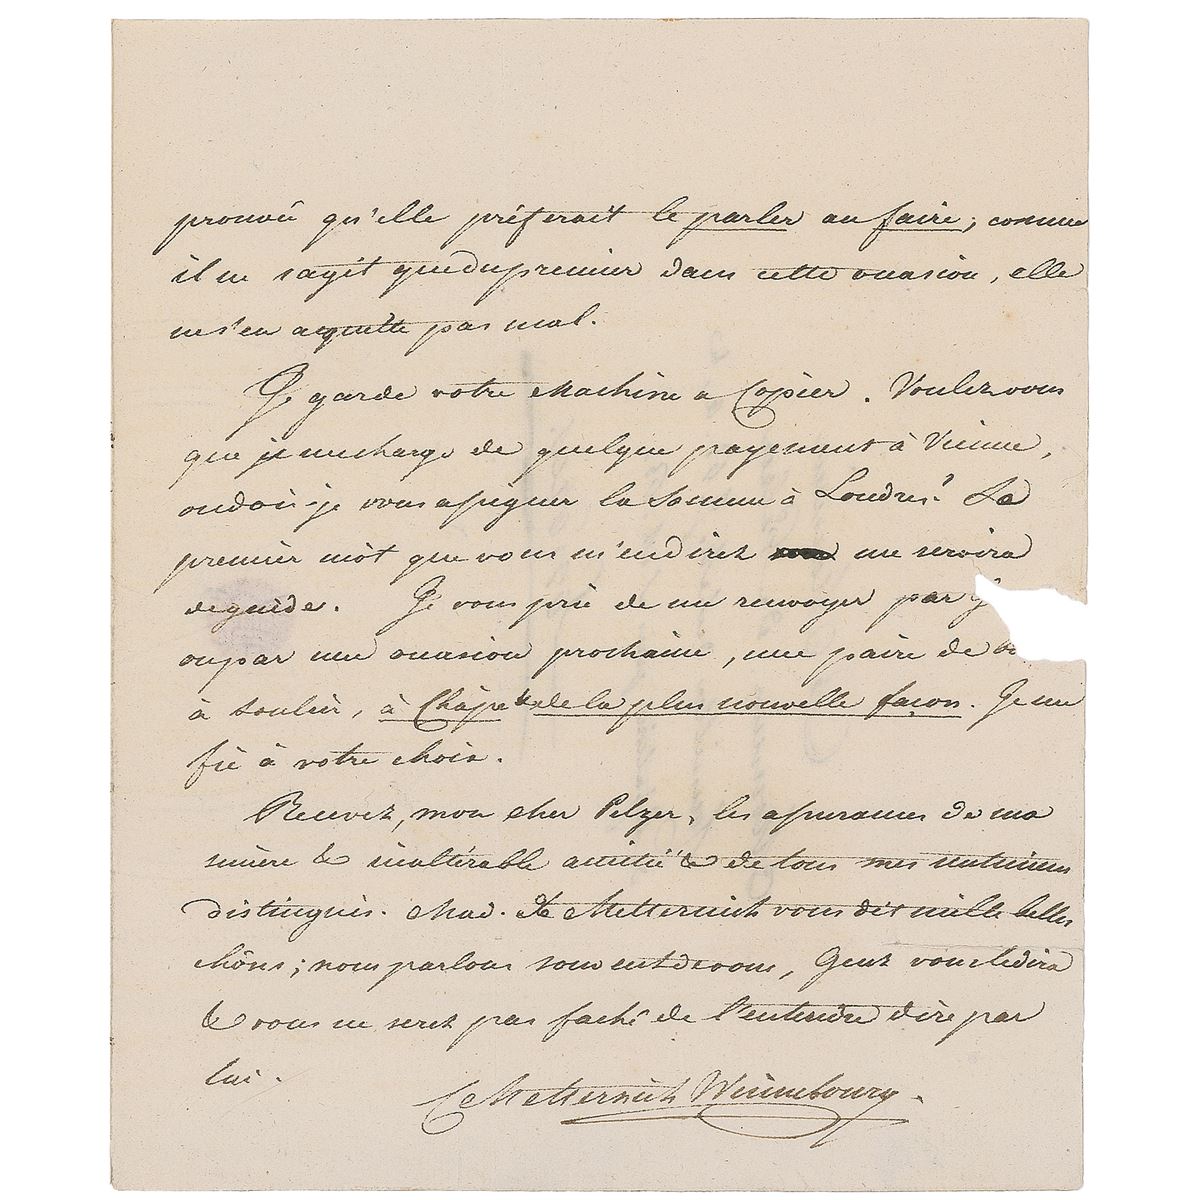 prouvé qu'elle préferait le parler au faire; comme
il ne s'agit que du premier dans cette occasion, elle
ne s'en acquitte pas mal.
Je garde votre Machine a Copier. Voulez vous
que je me charge de quelque payement à Vienne,
ou dois-je vous assigner la somme à Londres? Le
premier mot que vous m'en direz me servira
de guide. Je vous prie de me renvoyer par
ou par une occasion prochaine, une paire de
à soulier, à Chape de la plus nouvelle façon. Je me
fie à votre choix.
Recevez, mon cher Pelzer, les assurances de ma
sincère & inaltérable amitié & de tous mes sentimens
distingués. Mad. de Metternich vous dit mille belles
chôses; nous parlons souvent de vous, Gentz vous le dira
& vous ne serez pas faché de l'entendre dire par
lui.
C Metternich Winnebourg.